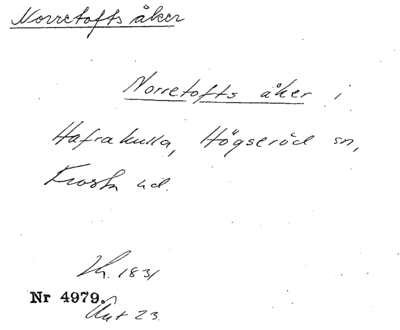 Norretofts åker
Norretofts åker i
Hafrakulla, Högseröd sn,
Frosta hd.
Lh. 1831
Nr 4979.
Akt 23.